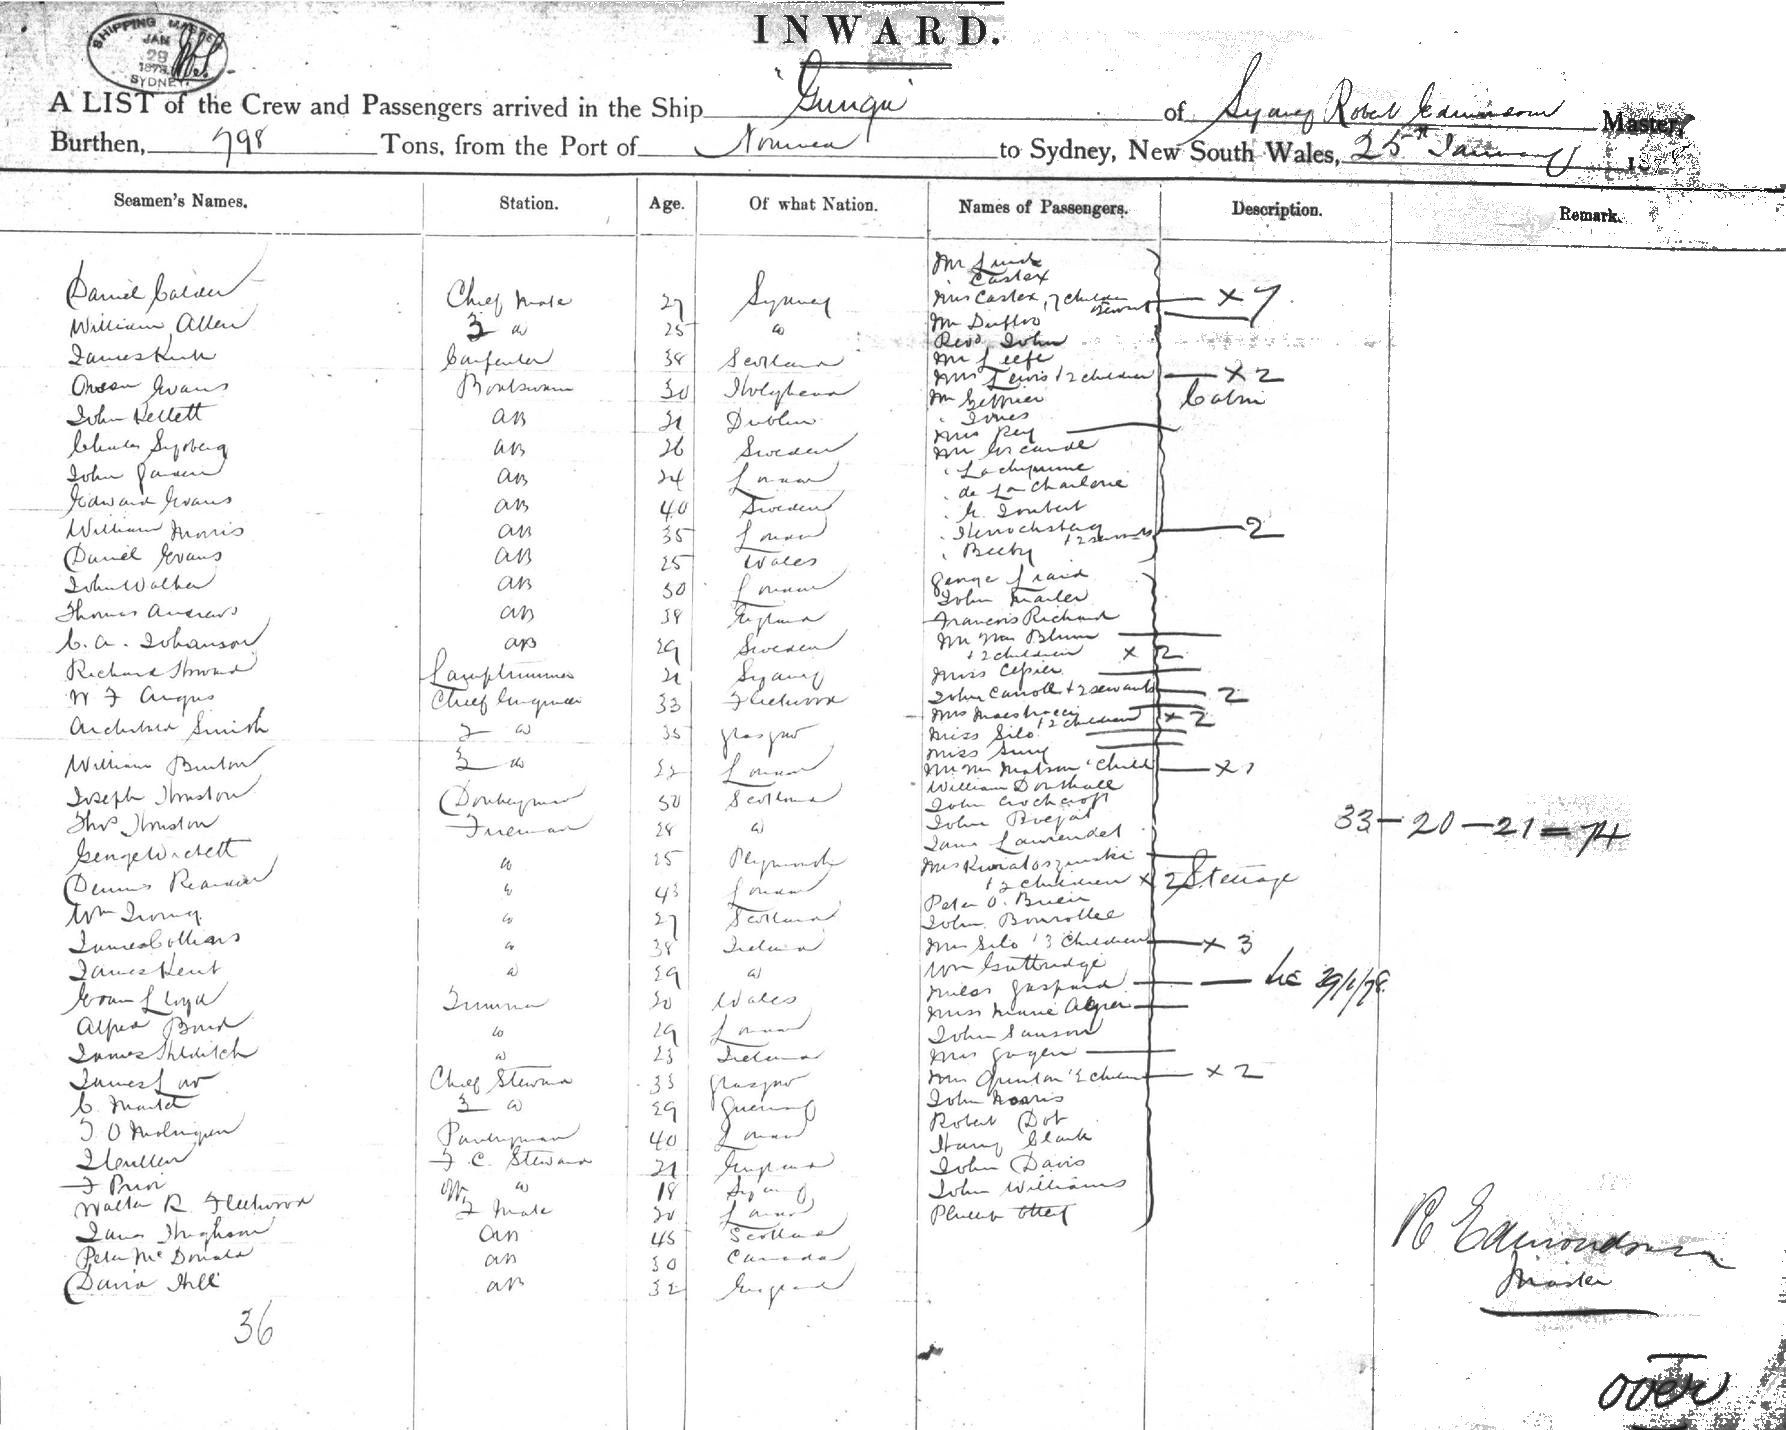 SHIPPING MASTER
JAN
29
1878
SYDNEY
INWARD.
A LIST of the Crew and Passengers arrived in the Ship "Gunga" of Sydney Robert Edmondson Master,
Burthen, 798 Tons, from the Port of Noumea to Sydney, New South Wales, 25th January 18
Seamen's Names. Station. Age. Of what Nation. Names of Passengers. Description. Remark.
Daniel Calder Chief Mate 27 Sydney
William Allen 2 do 25 do
James Kirk Carpenter 38 Scotland
Owen Evans Boatswain 30 Holyhead
John Kellett AB 21 Dublin
Charles AB 26 Sweden
John AB 24 London
Edward Evans AB 40 Sweden
William Morris AB 35 London
Daniel Evans AB 25 Wales
John Walker AB 30 London
Thomas Andrews AB 38 England
C. A. Johanson AB 29 Sweden
Richard Howard Lamptrimmer 21 Sydney
W F Angus Chief Engineer 33 Fleetwood
Archibald Smith 2 do 35 Glasgow
William Burton 3 do London
Joseph Houston Donkeyman 30 Scotland
Thos Houston Fireman 28 do
George Wickett do 25 Plymouth
Dennis Reardon do 43 London
Wm Irving do 27 Scotland
James Collins do 38 Ireland
James Kent do 29 do
Evan Lloyd Trimmer 30 Wales
Alfred Bond do 29 London
James Hilditch do 23 Ireland
James Law Chief Steward 33 Glasgow
C. 2 do 29 Guernsey
Pantryman 40 London
F. C. Steward 21 England
F Prior do 18 Sydney
Walter R. Fleetwood 2 Mate 30 London
James Hugham AB 45 Scotland
Peter McDonald AB 30 Canada
David Hill AB 32 England
36
Mr
" Castex
Mrs Castex, 7 children servant × 7
Mr Duflos
Revd John
Mr Leefe
Mrs Lewis + 2 children × 2
Mr Cabin
" Jones
Mrs Rey
Mr
"
" de La Charlerie
" Joubert
" + 2 servants 2
" Beeby
George
John
Francois Richard
Mr Mrs Blum
+ 2 children × 2
Miss
John Carroll + 2 servants 2
Mrs Maestracci + 2 children × 2
Miss Silo
Miss
Mr Mrs Watson 1 Child × 1
William Douthall
John Crockcroft
John
33 – 20 – 21 = 74
Mrs
+ 2 children × 2 Steerage
Peter O. Brien
John
Mrs Silo 3 Children × 3
Wm Guttridge
Miss Gaspard 29/1/78
Miss Marie
John Sanson
Mrs
Mrs Quinton 2 children × 2
John Morris
Robert Dot
Harry Clark
John Davis
John Williams
Phillip
R Edmondson
Master
over